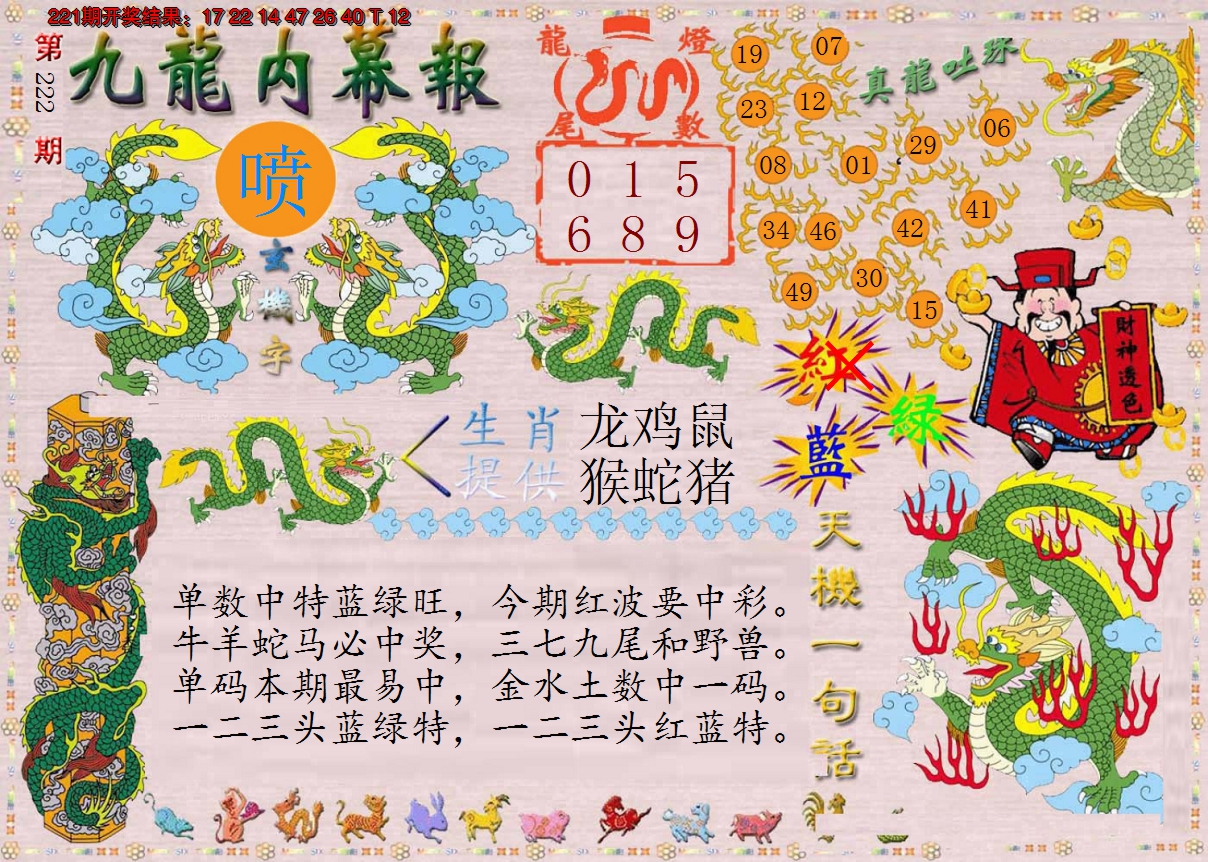 221期开奖结果：17 22 14 47 26 40 T 12
第222期
九龍内幕報
喷
玄機字
龍燈
尾數
0 1 5
6 8 9
真龍吐珠
19
07
23
12
06
29
08
01
41
34
46
42
30
49
15
紅
綠
藍
財神透色
生肖
提供
龙鸡鼠
猴蛇猪
单数中特蓝绿旺，今期红波要中彩。
牛羊蛇马必中奖，三七九尾和野兽。
单码本期最易中，金水土数中一码。
一二三头蓝绿特，一二三头红蓝特。
天機一句话